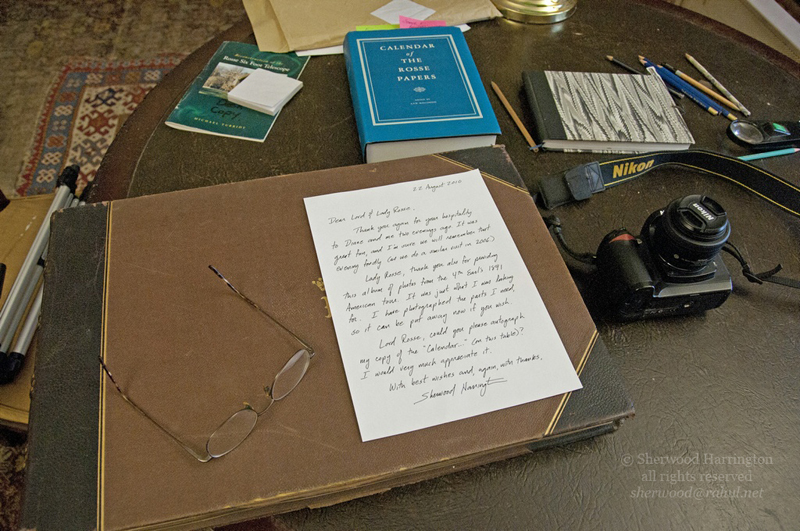 Rosse Six Foot Telescope
Copy
MICHAEL
CALENDAR
of
THE
ROSSE
PAPERS
Nikon
Nikon
22 August 2010
Dear Lord & Lady Rosse,
Thank you again for your hospitality
to Diane and me two evenings ago. It was
great fun, and I'm sure we will remember that
evening fondly (as we do a similar visit in 2006.)
Lady Rosse, thank you also for providing
this album of photos from the 4th Earl's 1891
American tour. It was just what I was looking
for. I have photographed the parts I need,
so it can be put away now if you wish.
Lord Rosse, could you please autograph
my copy of the "Calendar..." (on this table)?
I would very much appreciate it.
With best wishes and, again, with thanks,
Sherwood Harrington
© Sherwood Harrington
all rights reserved
sherwood@rahul.net